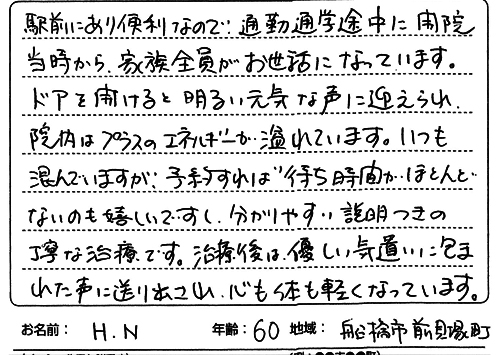 駅前にあり便利なので、通勤通学途中に開院
当時から、家族全員がお世話になっています。
ドアを開けると明るい元気な声に迎えられ、
院内はプラスのエネルギーが溢れています。いつも
混んでいますが、予約すれば待ち時間がほとんど
ないのも嬉しいですし、分かりやすい説明つきの
丁寧な治療です。治療後は、優しい気遣いに包ま
れた声に送り出され、心も体も軽くなっています。
お名前： H.N 年齢： 60 地域： 船橋市前貝塚町